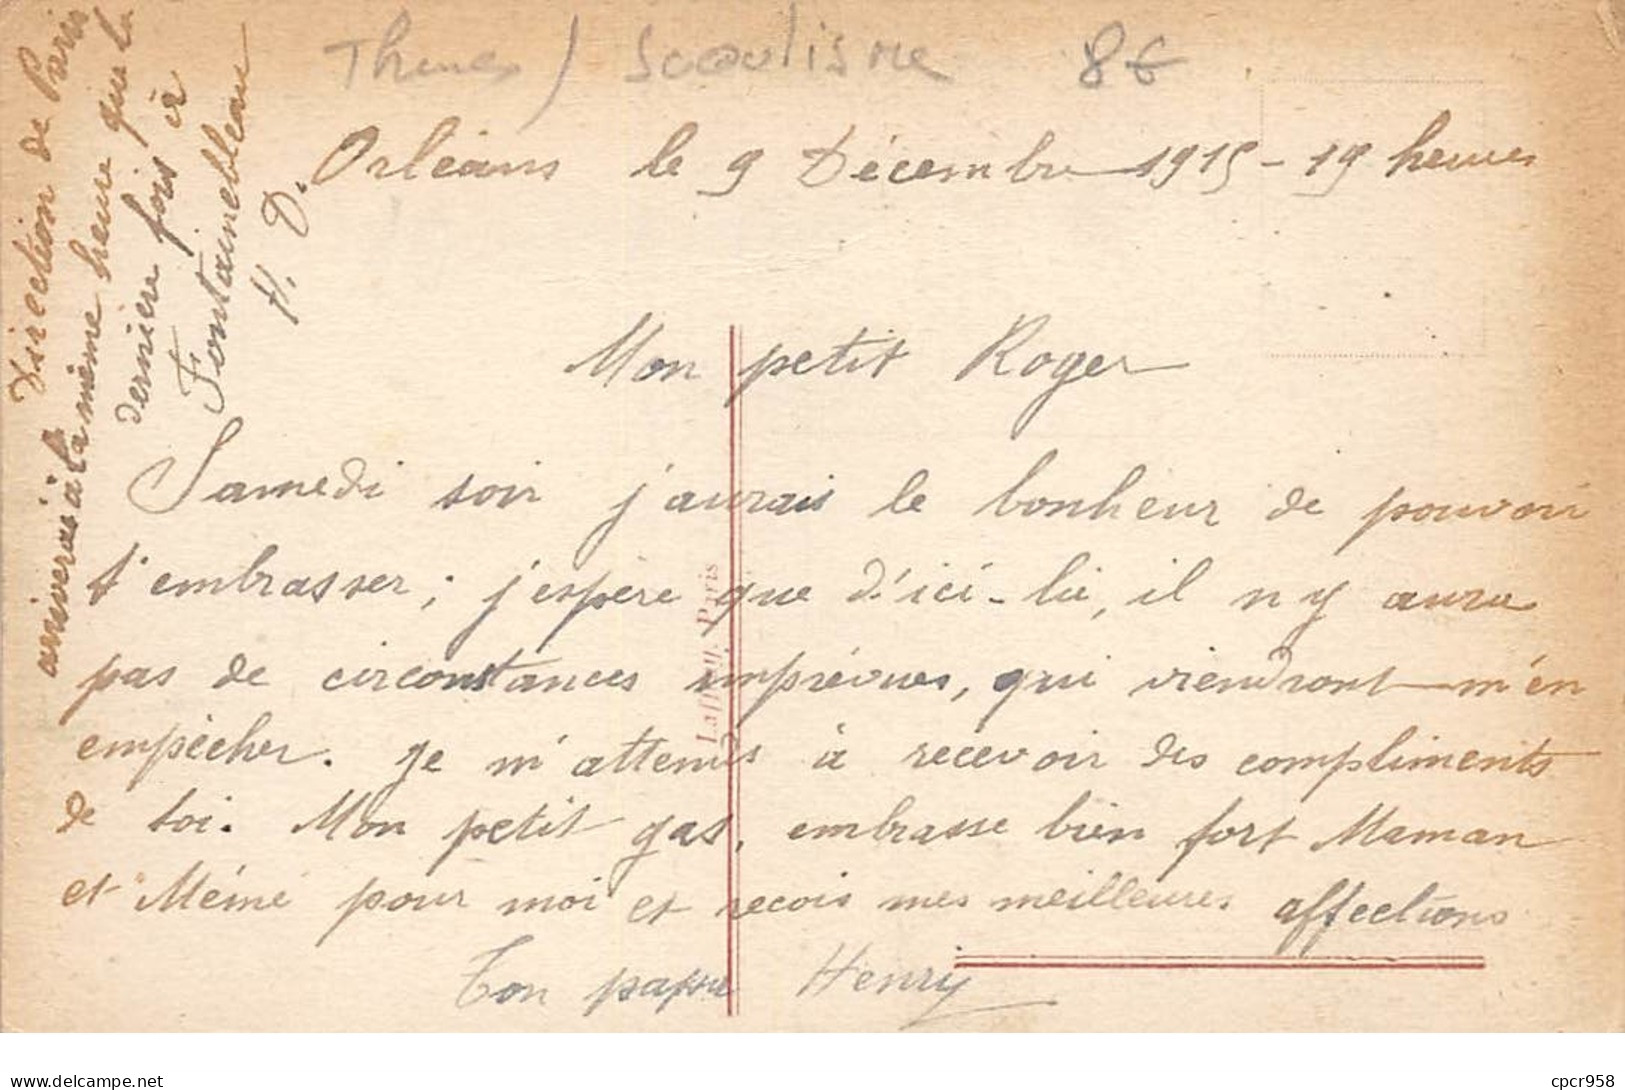 Themes / Scoutisme 8€
Orléans le 9 Décembre 1915 - 19 heures
Mon petit Roger
Samedi soir j'aurais le bonheur de pouvoir
t'embrasser ; j'espère que d'ici-là, il n'y aura
pas de circonstances imprévues, qui viendront m'en
empêcher. Je m'attends à recevoir des compliments
de toi. Mon petit gas, embrasse bien fort Maman
et Mémé pour moi et reçois mes meilleures affections
Ton papa Henry
arriverai à la même heure que la
dernière fois
Fontainebleau
H. D.
Direction de Paris
Paris
delcampe.net
cpcr958